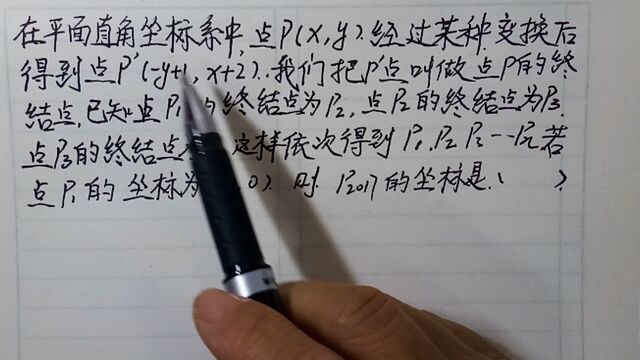 在平面直角坐标系中,点P(x,y)经过某种变换后
得到点P'(-y+1,x+2).我们把P'点叫做点P的终
结点,已知点P1的终结点为P2,点P2的终结点为P3,
点P3的终结点 这样依次得到P1.P2 P3…Pn若
点P1的坐标为 0).则P2017的坐标是( )
MITSU